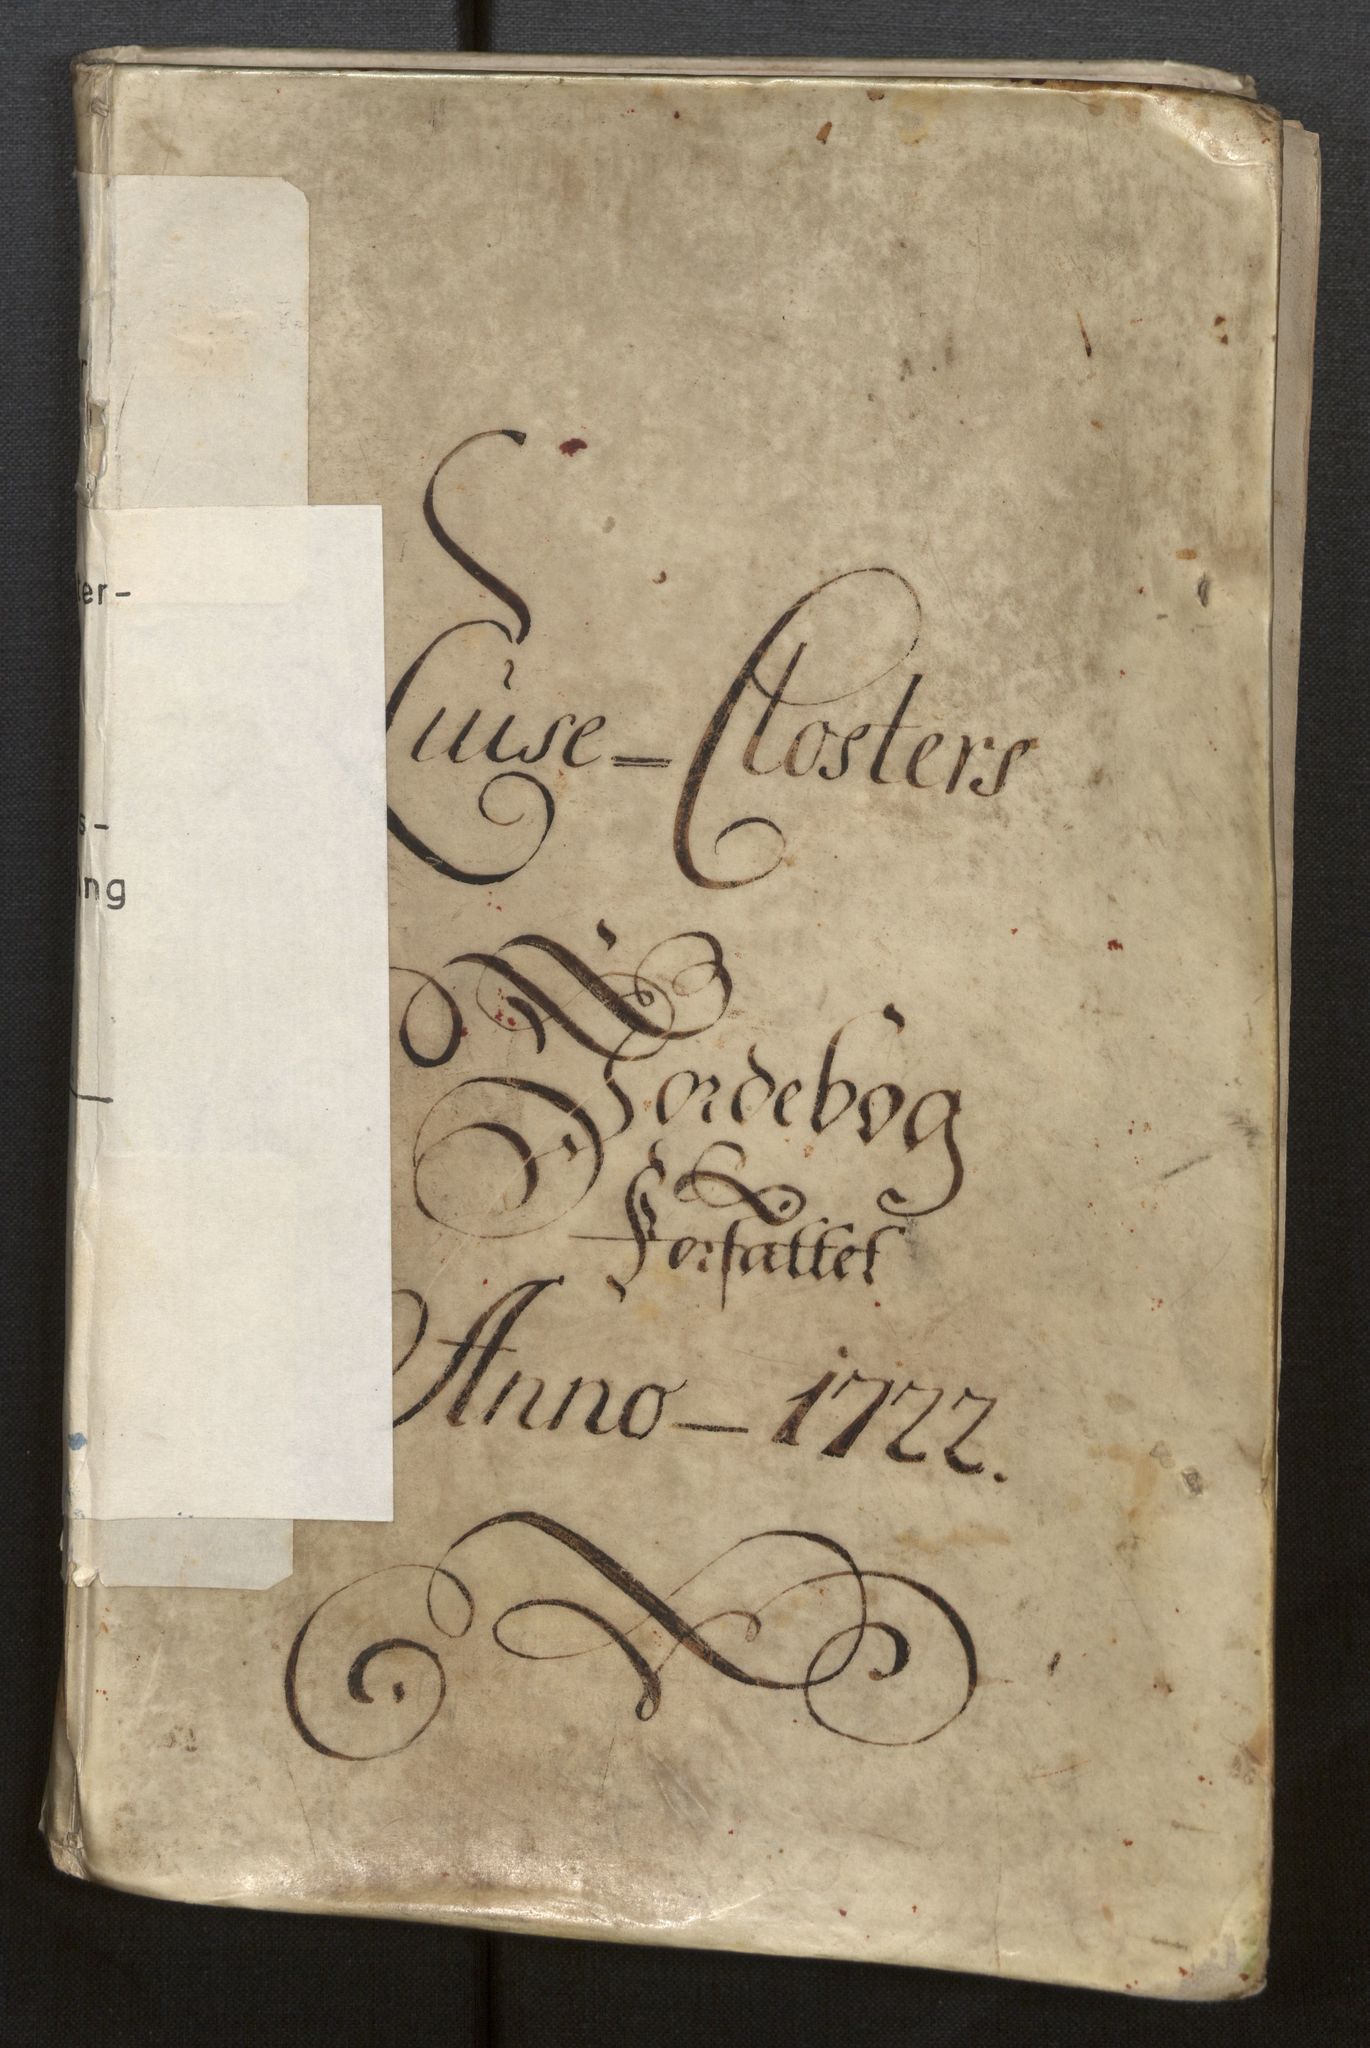 Luise=Closters
Jordebog
Forfattet
Anno - 1722.
ter-
s-
ng